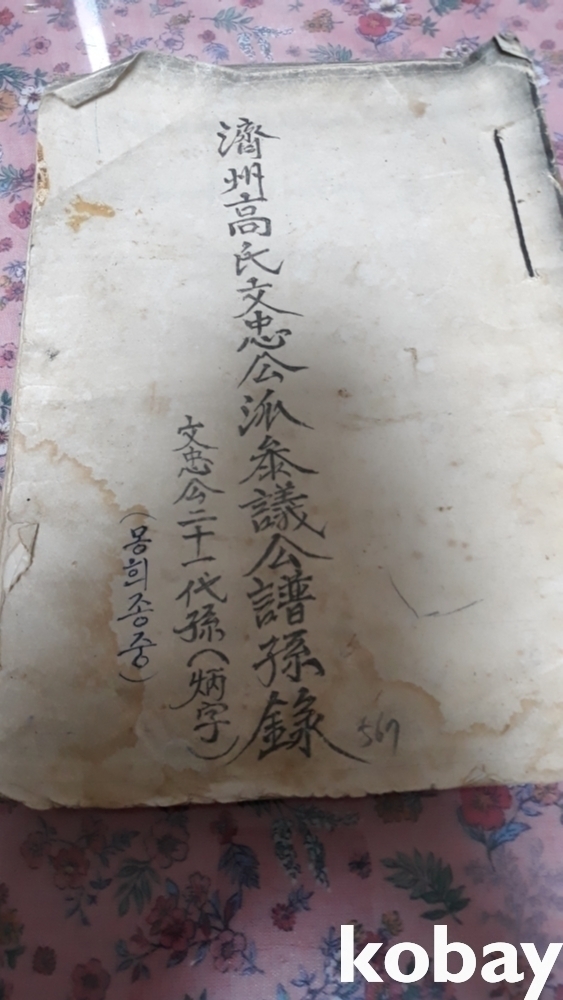 濟州高氏文忠公派叅議公譜孫錄
文忠公二十一代孫(炳字)
(몽희종중)
567
kobay